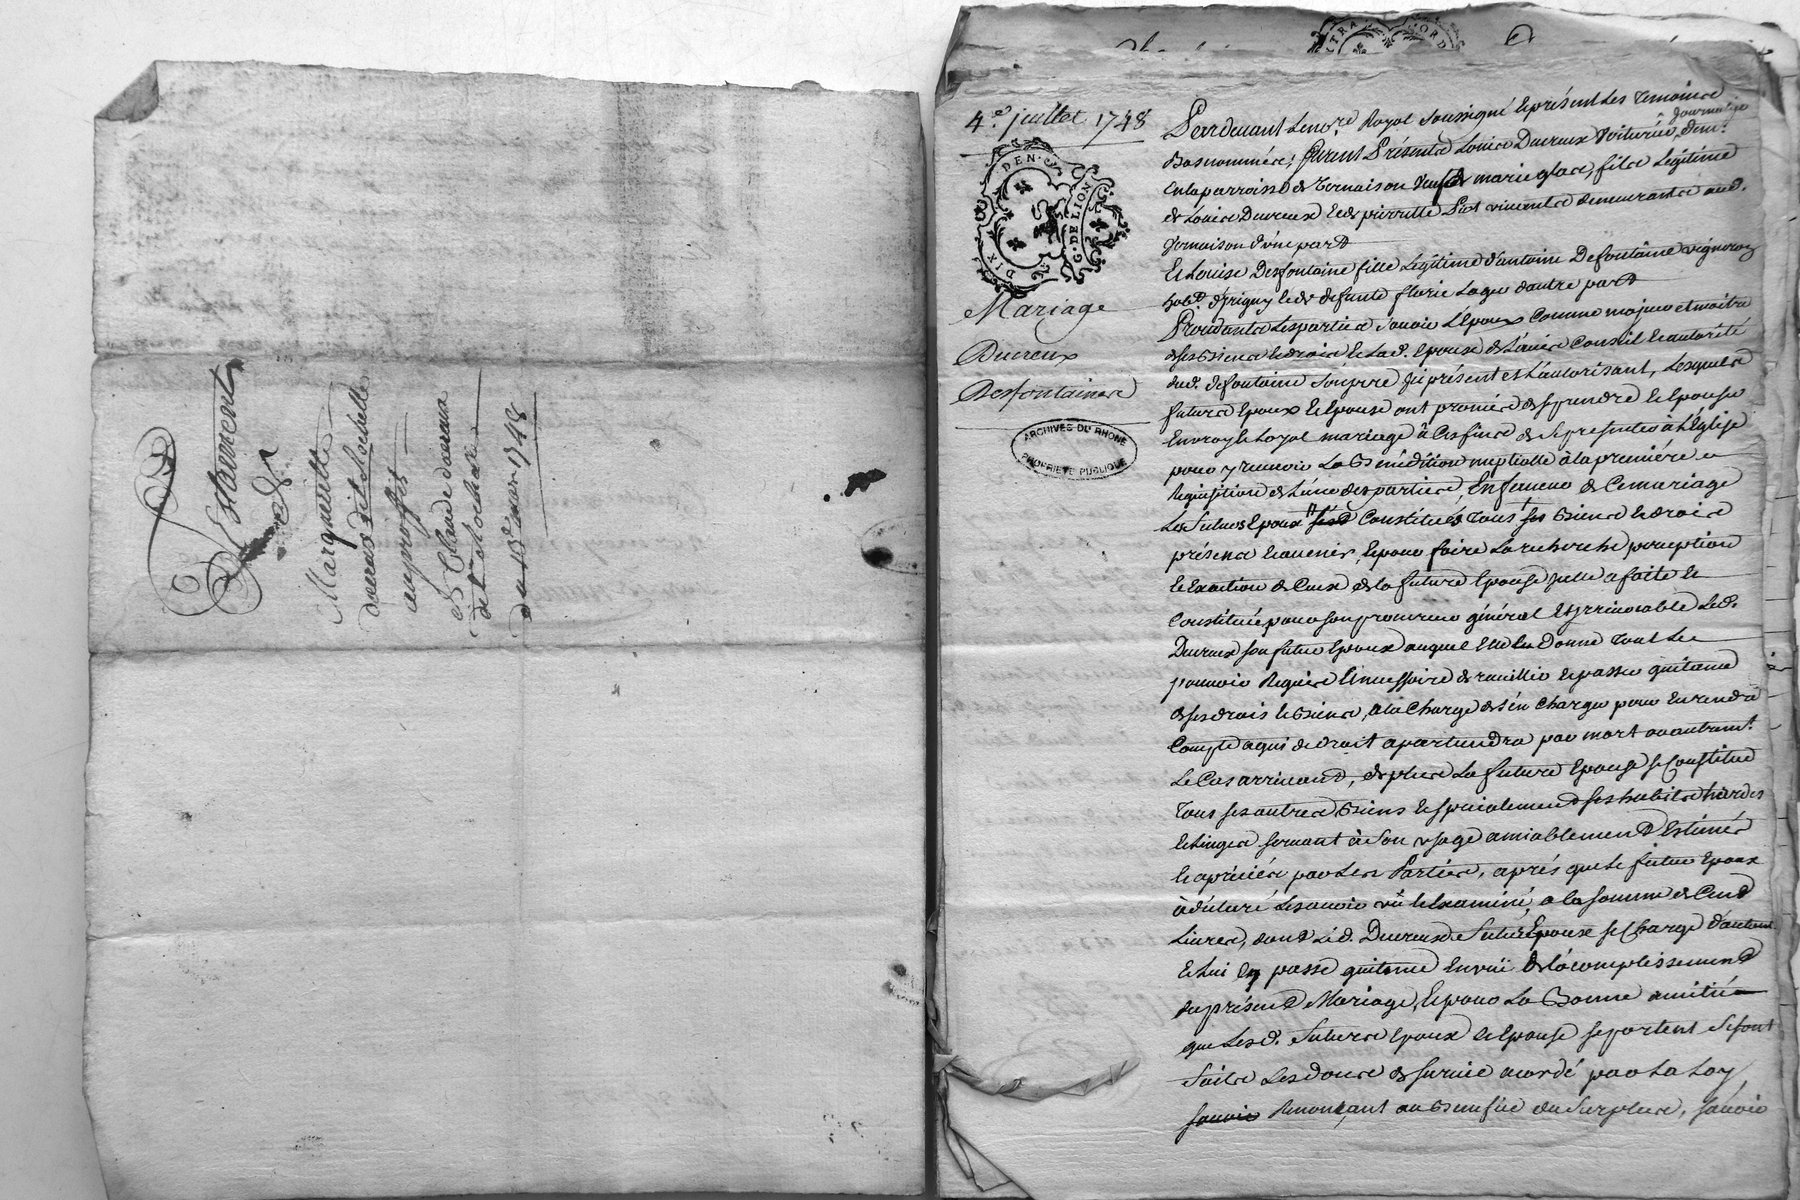 Testament
de
Margueritte
ducreux dit Rochette
au proffit
de Claude ducreux
dit Rochette
du 15e mars 1748
4e juillet 1748
DIX DEN.
G. DE LION
Mariage
Ducreux
Desfontaines
ARCHIVES DU RHONE
PROPRIETE PUBLIQUE
Pardevant Le nore Royal soussigné Et présent Les temoins
Bas nommés, furent Présents Louis Ducreux Voiturier demt
En la parroisse de Ternaison veuf de marie glas, fils Légitime
de Louis Ducreux Et de pierrette vivents demeurants aud.
Ternaison d'une part
Et Louise Desfontaine fille Légitime d'antoine Defontaine vigneron
habt d'irigny Et de defunte florie Lager d'autre part
Procedants Les parties savoir L'Epoux Comme majeur et maitre
de ses Biens Et droits Et Lad. Epouse de L'avis Conseil Et autorité
dud. defontaine son pere ici présent et L'autorisant, Lesquels
futurs Epoux Et Epouse ont promis de se prendre Et Epouser
En vray Et Loyal mariage à Ces fins de se presenter à L'Eglise
pour y recevoir La Bénédiction nuptialle à la première
Requisition de L'une des parties, En faveur de Ce mariage
Les futurs Epoux se sont Constitués tous ses Biens Et droits
présents Et avenir, Et pour faire La recherche perception
Et Exaction de Ceux de la future Epouse Elle a faite Et
Constitué pour son procureur général Et irrévocable Led.
Ducreux son futur Epoux auquel Elle En Donne tout Le
pouvoir Requis Et necessaire de receuillir Et passer quitance
de ses droits Et Biens, à la Charge de s'en Charger pour En rendre
Compte a qui de droit apartiendra par mort ou autremt
Le Cas arrivant, de plus La future Epouse se Constitue
tous ses autres Biens Et specialement ses habits hardes
Et Linges servant à son usage amiablement Estimés
Et apréciés par Les Parties, après que Le futur Epoux
à déclaré Les avoir vû Et Examiné, a la somme de Cent
Livres, dont Led. Ducreux futur Epoux se Charge d'autant
Et Lui En passe quitance En vuë de L'acomplissement
du présent Mariage, Et pour La Bonne amitié
que Lesd. futurs Epoux Et Epouse se portent se font
faits Les dons de survie acordé par La Loy
savoir Renonçant au Benefice du surplus, savoir